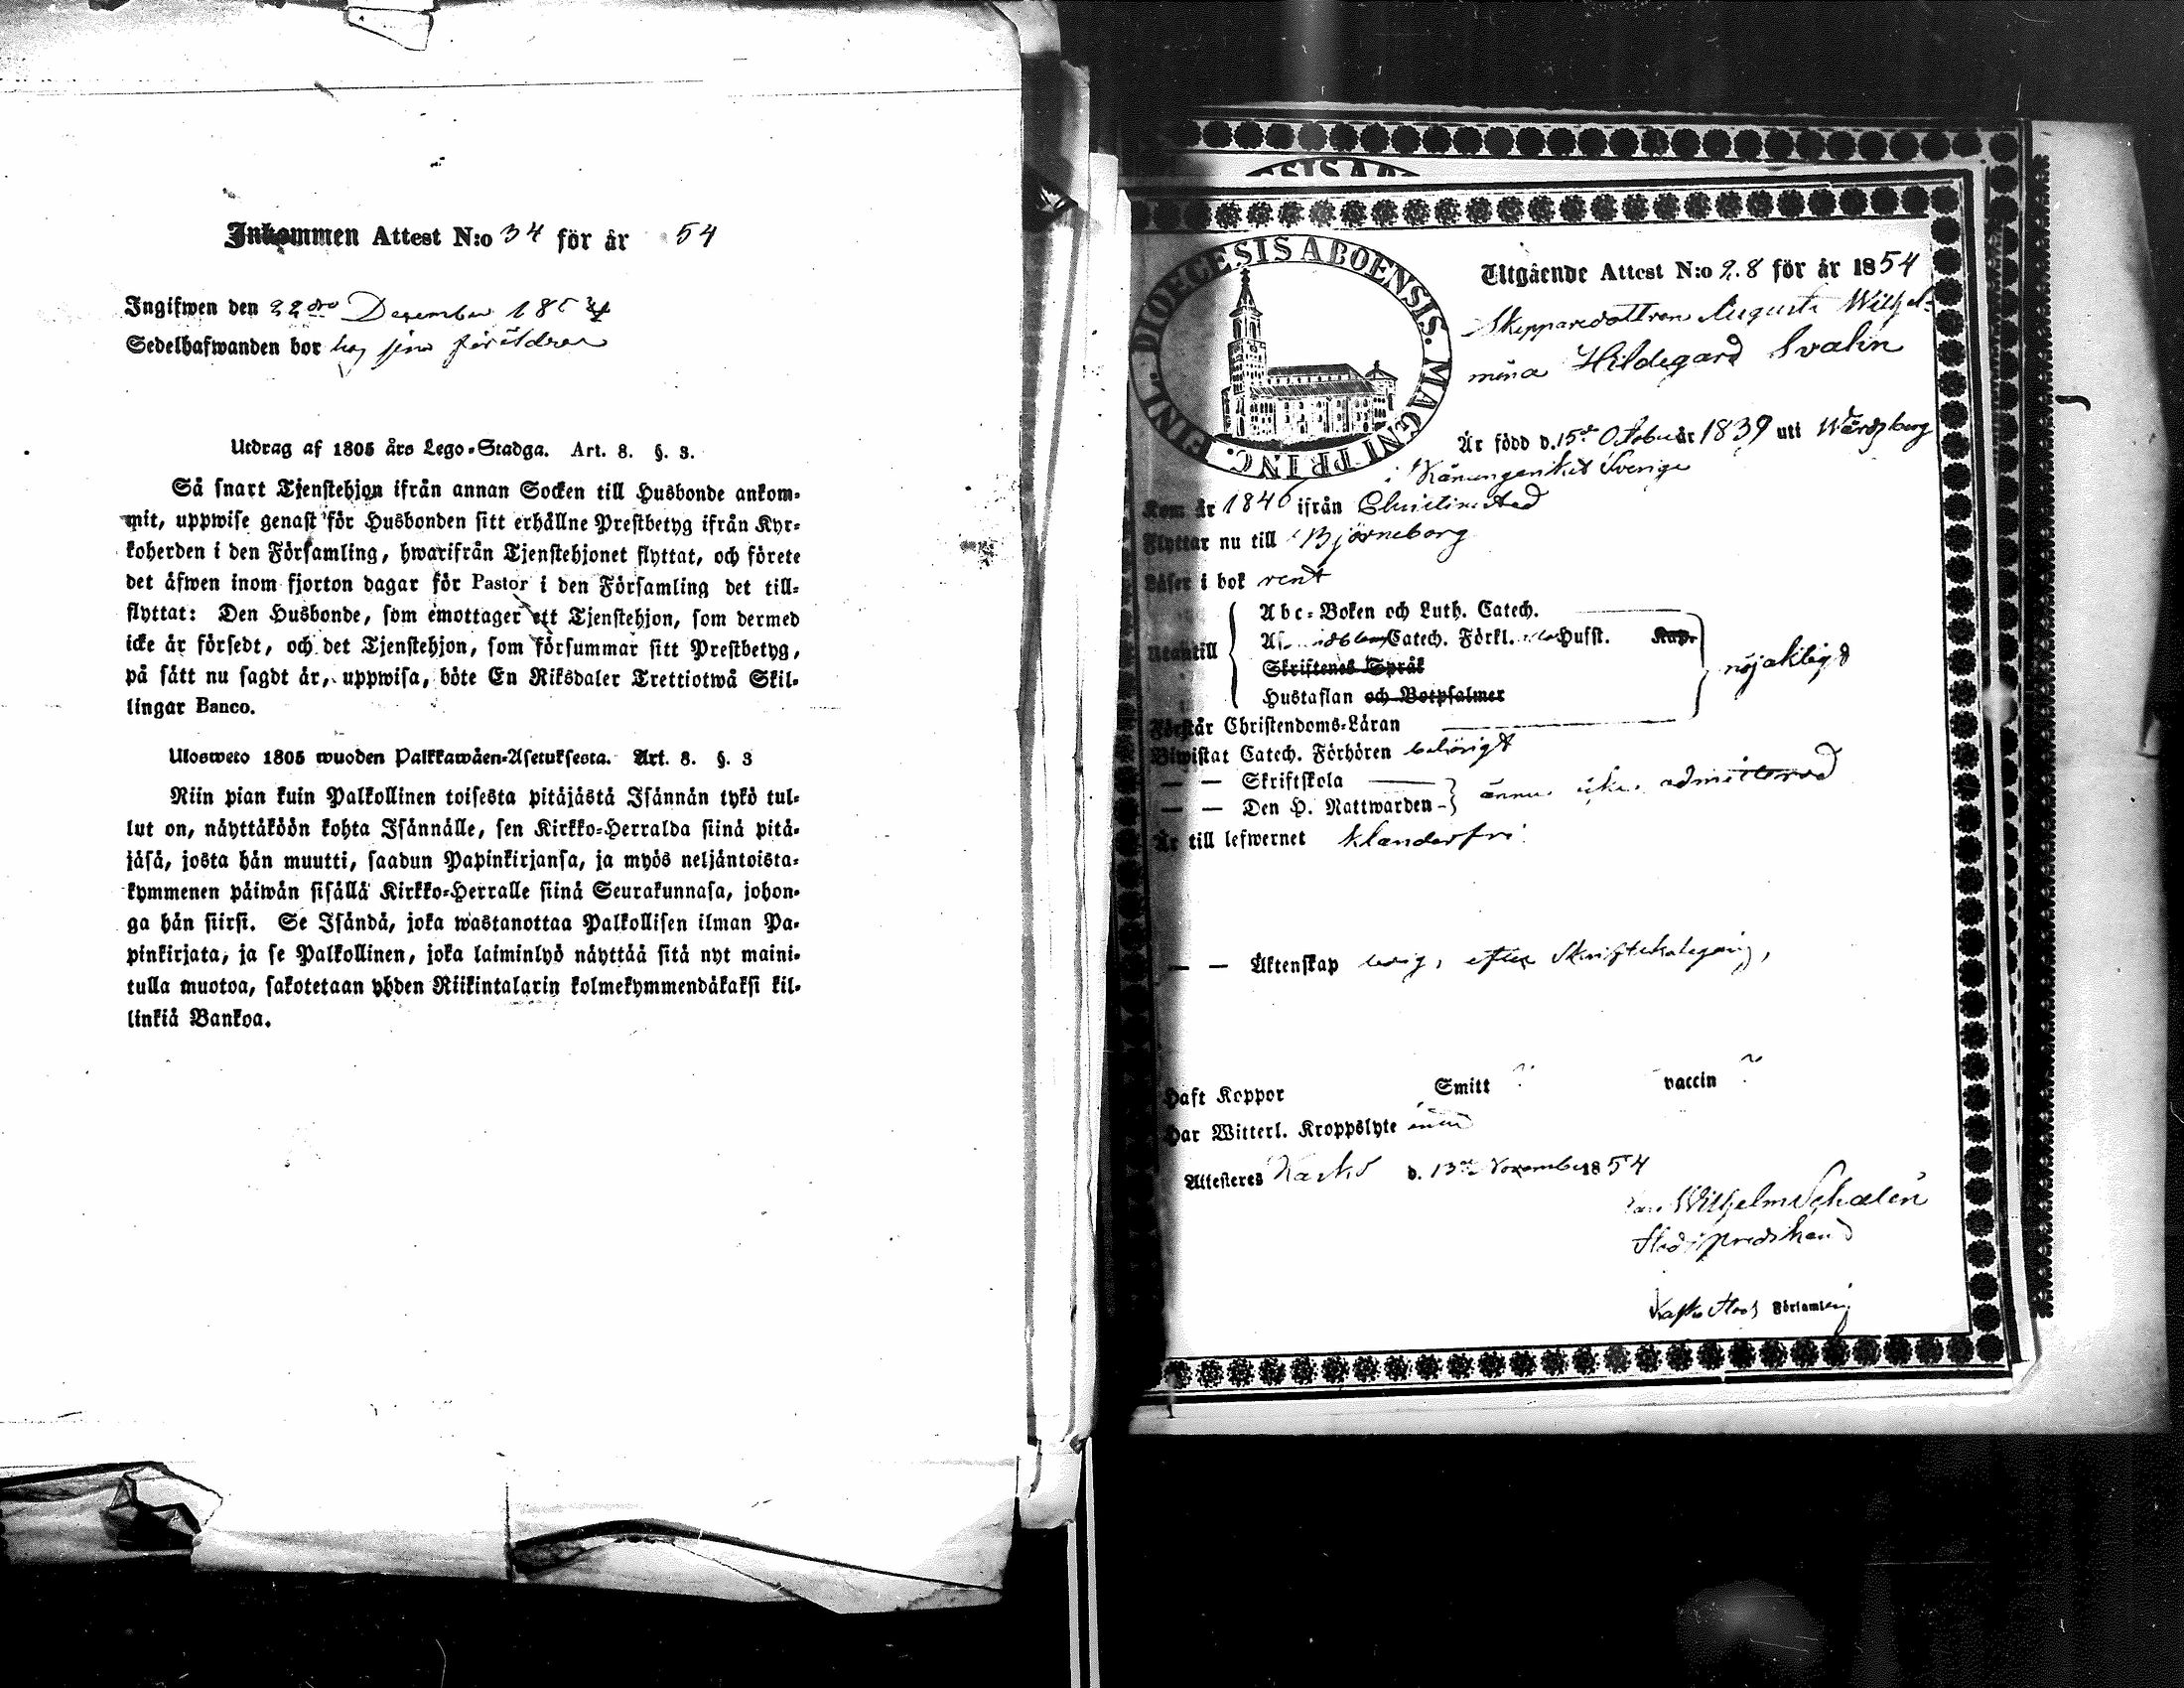 Inkommen Attest N:o 34 för år 54
Ingifwen den 22dra December 1854
Sedelhafwanden bor hos sina föräldrar
Utdrag af 1805 års Lego-Stadga. Art. 8. §. 3.
Så snart Tjenstehjon ifrån annan Socken till Husbonde ankom-
mit, uppwise genast för Husbonden sitt erhållne Prestbetyg ifrån Kyr-
koherden i den Församling, hwarifrån Tjenstehjonet flyttat, och förete
det äfwen inom fjorton dagar för Pastor i den Församling det till-
flyttat: Den Husbonde, som emottager ett Tjenstehjon, som dermed
icke är försedt, och det Tjenstehjon, som försummar sitt Prestbetyg,
på sätt nu sagdt är, uppwisa, böte En Riksdaler Trettiotwå Skil-
lingar Banco.
Ulosweto 1805 wuoden Palkkawäen-Asetuksesta. Art. 8. §. 3
Niin pian kuin Palkollinen toisesta pitäjästä Isännän tykö tul-
lut on, näyttäköön kohta Isännälle, sen Kirkko-Herralda siinä pitä-
jäsä, josta hän muutti, saadun Papinkirjansa, ja myös neljäntoista-
kymmenen päiwän sisällä Kirkko-Herralle siinä Seurakunnasa, johon-
ga hän siirsi. Se Isändä, joka wastanottaa Palkollisen ilman Pa-
pinkirjata, ja se Palkollinen, joka laiminlyö näyttää sitä nyt maini-
tulla muotoa, sakotetaan yhden Riikintalarin kolmekymmendäkaksi kil-
linkiä Bankoa.
SIS AB
DIOECESIS ABOENSIS. MAGNI PRINC. FINL.
Utgående Attest N:o 28 för år 1854
Skepparedottren Augusta Wilhel-
mina Hildegard Svalin
Är född d. 15de October år 1839 uti Wärdsberg
i Konungariket Sverige
Kom år 1846 ifrån Christinestad
Flyttar nu till Björneborg
Läser i bok rent
Utantill
Abc-Boken och Luth. Catech.
Catech. Förkl. Hufst. Kap.
Skriftenes Språk
Hustaflan och Botpsalmer
nöjaktigt
Förstår Christendoms-Läran
Biwistat Catech. Förhören behörigt
— — Skriftskola
— — Den H. Nattwarden
ännu icke admitterad
Är till lefwernet klanderfri
— — Äktenskap ledig, efter Skriftskolegång,
Haft Koppor Smitt ? vaccin ?
Har Witterl. Kroppslyte intet
Attesteres Kaskö d. 13de November 1854
Wilhelm Schalin
Stadspredikand
Kaskö Stads Församling